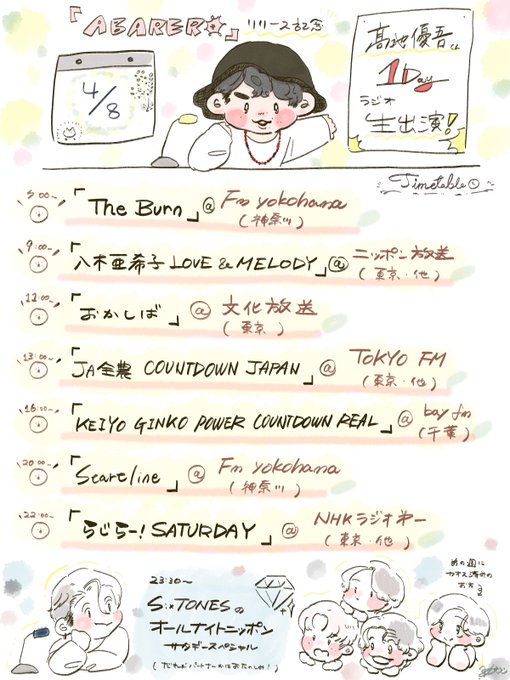 「ABARERO」リリース記念
4/8
髙地優吾
1Day
ラジオ
生出演!
Timetable
5:00~「The Burn」@ Fm yokohama
(神奈川)
9:00~「八木亜希子 LOVE & MELODY」@ ニッポン放送
(東京・他)
12:00~「おかしば」@ 文化放送
(東京)
13:00~「JA全農 COUNTDOWN JAPAN」@ TOKYO FM
(東京・他)
16:00~「KEIYO GINKO POWER COUNTDOWN REAL」@ bay fm
(千葉)
20:00~「Scareline」@ Fm yokohama
(神奈川)
22:00~「らじらー! SATURDAY」@ NHKラジオ第一
(東京・他)
23:30~
SixTONESの
オールナイトニッポン
サタデースペシャル